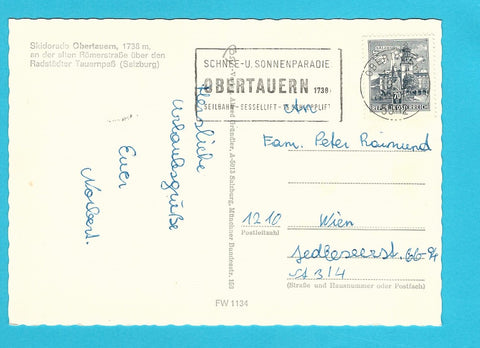 Skidorado Obertauern, 1738 m,
an der alten Römerstraße über den
Radstädter Tauernpaß (Salzburg)
SCHNEE-U.SONNENPARADIE
OBERTAUERN 1738
SEILBAHN-SESSELLIFT-
REPUBLIK ÖSTERREICH
Herzliche
Urlaubsgrüße
Euer
Norbert.
A-5013 Salzburg, Münchner Bundesstr. 159
An
Fam. Peter Raimund
1210 Wien
Postleitzahl
Jedleseerst. 66-94
St 3/4
(Straße und Hausnummer oder Postfach)
FW 1134